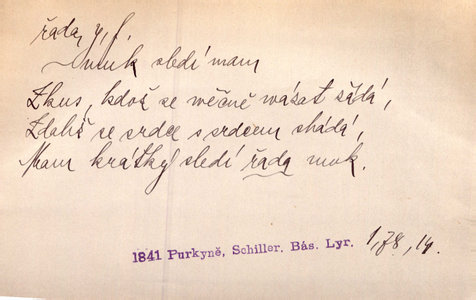 řada, y, f.
sledí mam
Zkus, kdož se wěčně wázat žádá,
Zdaliž se srdce s srdcem shádá,
Mam krátký sledí řada muk.
1841 Purkyně, Schiller. Bás. Lyr. 1, 78, 14.